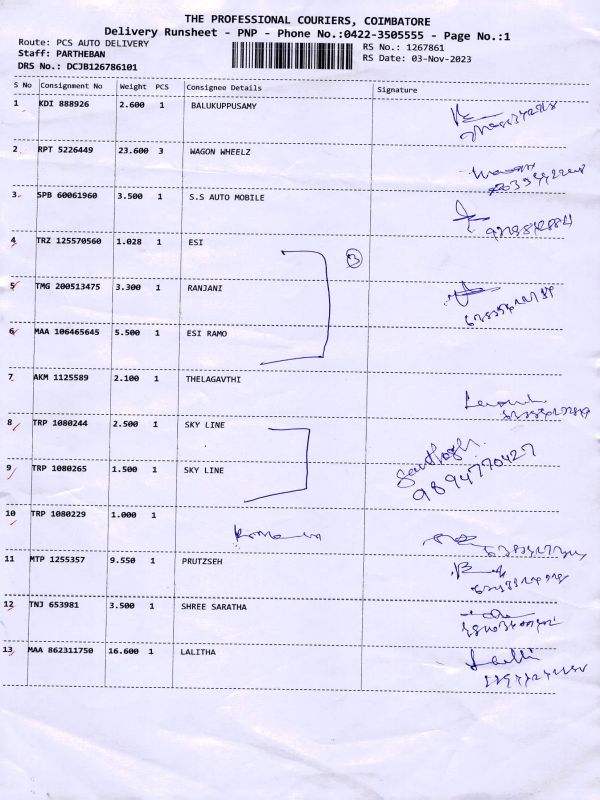 THE PROFESSIONAL COURIERS, COIMBATORE
Delivery Runsheet - PNP - Phone No.:0422-3505555 - Page No.:1
Route: PCS AUTO DELIVERY
RS No.: 1267861
Staff: PARTHEBAN
RS Date: 03-Nov-2023
DRS No.: DCJB126786101
S No Consignment No Weight PCS Consignee Details Signature
1 KDI 888926 2.600 1 BALUKUPPUSAMY
2 RPT 5226449 23.600 3 WAGON WHEELZ
3 SPB 60061960 3.500 1 S.S AUTO MOBILE
4 TRZ 125570560 1.028 1 ESI
3
5 TMG 200513475 3.300 1 RANJANI
6 MAA 106465645 5.500 1 ESI RAMO
7 AKM 1125589 2.100 1 THELAGAVTHI
8 TRP 1080244 2.500 1 SKY LINE
9 TRP 1080265 1.500 1 SKY LINE
9894770427
10 TRP 1080229 1.000 1
11 MTP 1255357 9.550 1 PRUTZSEH
12 TNJ 653981 3.500 1 SHREE SARATHA
13 MAA 862311750 16.600 1 LALITHA